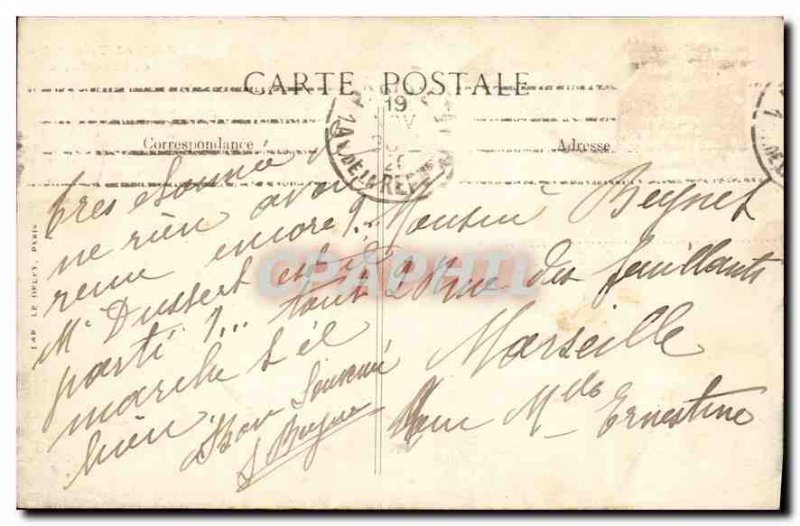 CARTE POSTALE
Correspondance
Adresse
19
très étonné
ne rien avoir
reçue encore !..
Mr Dussert est il
parti ?...
tout
marche t'il
bien
Bon Souvenir
Monsieur Beynet
2 Rue des feuillants
Marseille
Pour Mlle Ernestine
IMP. LE DELEY, PARIS
CPAPHIL